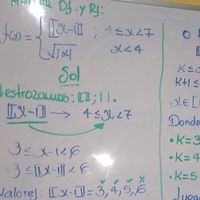 Hallar Df. y Rf:
f(x) = { [[x-1]] ; 4 ≤ x < 7
√|x| ; x < 4
Sol
destrozamos: [[ ]]; | |.
[[x-1]] → 4 ≤ x < 7
3 ≤ x-1 < 6
3 ≤ [[x-1]] < 6
valores: [[x-1]] = 3, 4, 5, 6.
K ≤
K+1 ≤
x ∈ [
Donde
• K=3
• K=4
• K=5